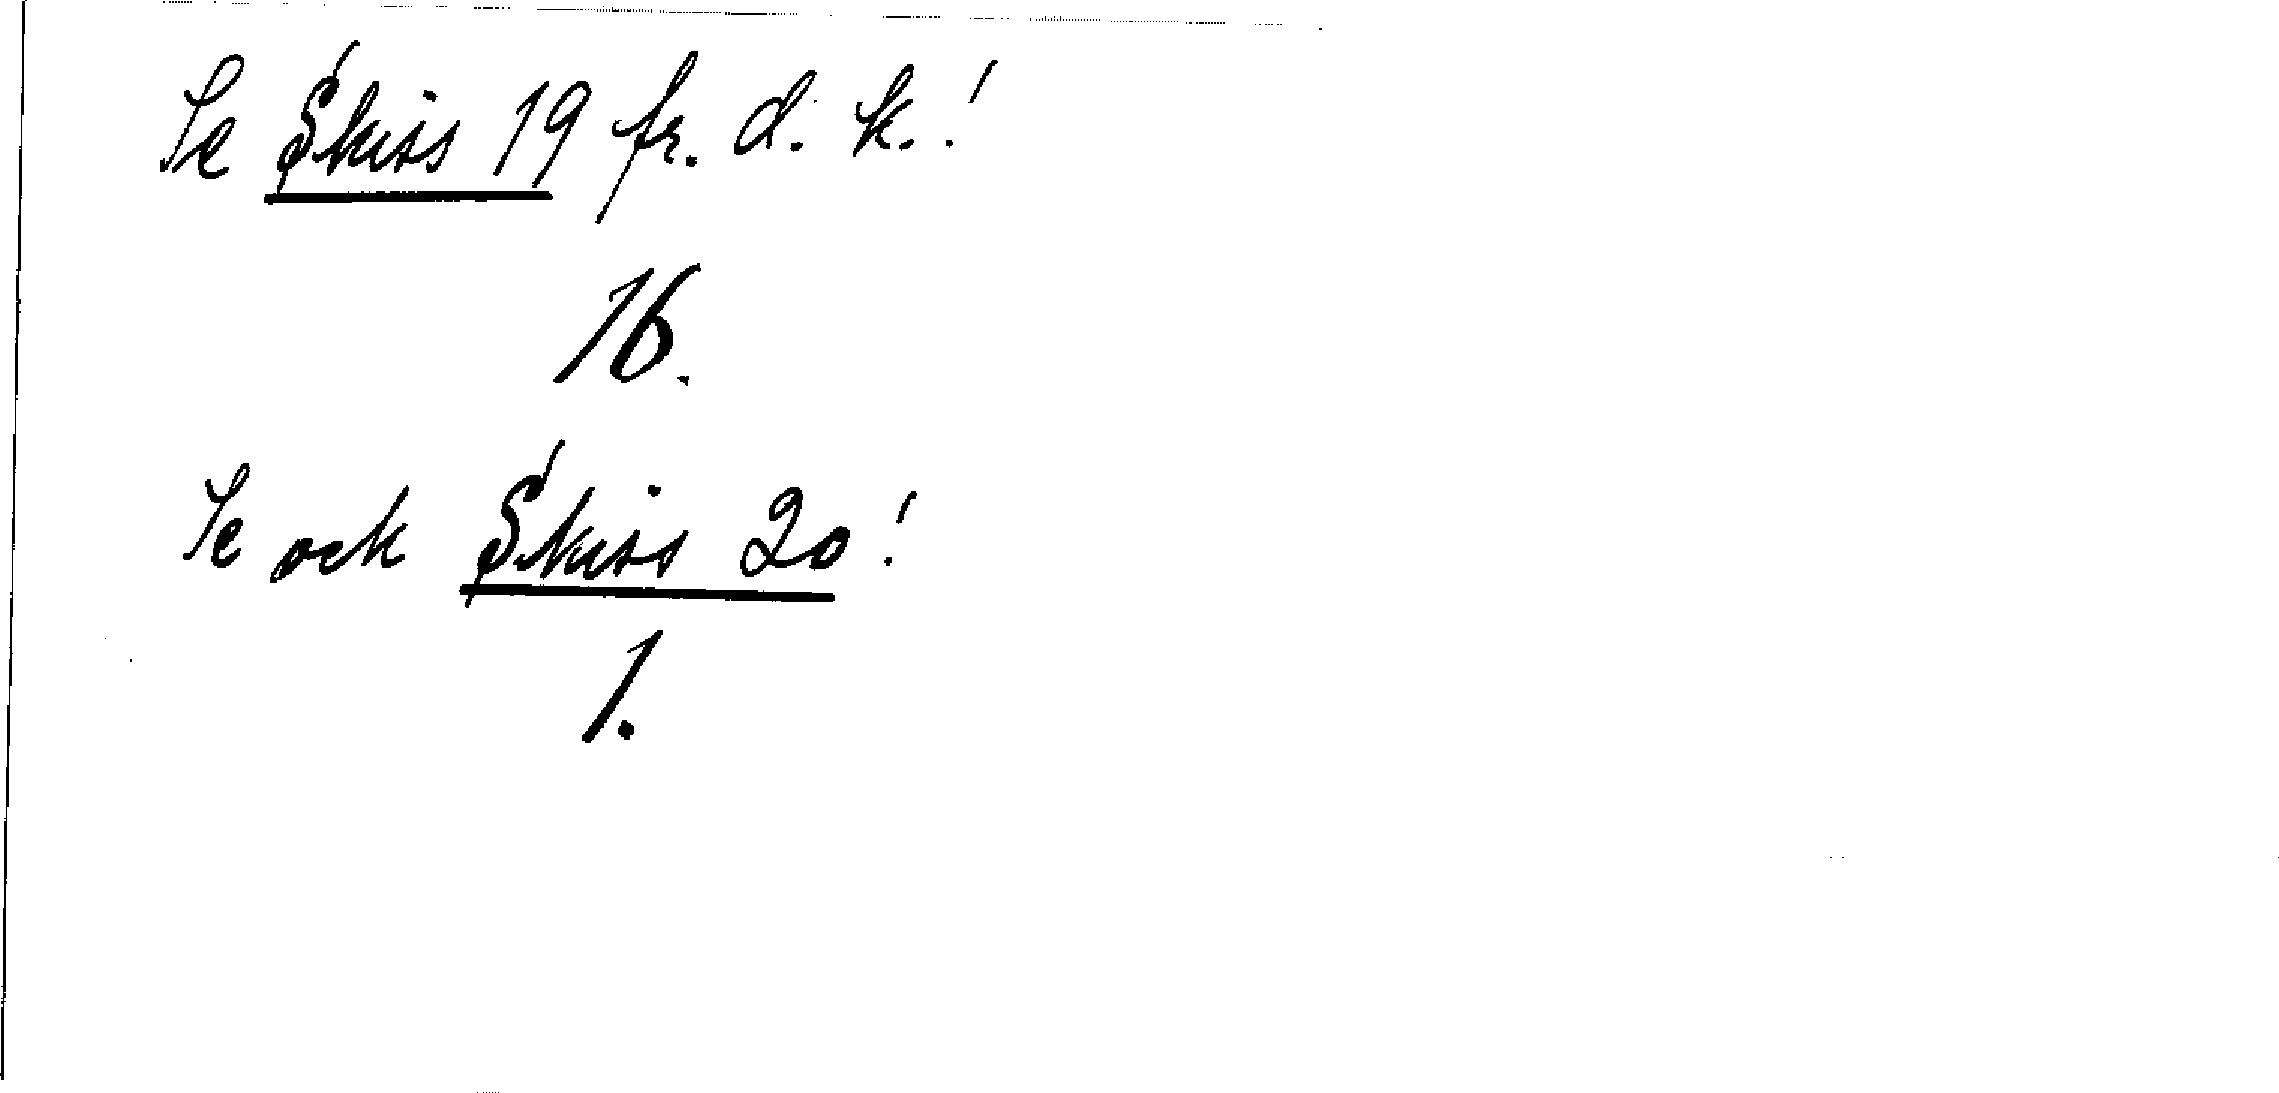 Se Skiss 19 fr. d. k.!
16.
Se ock Skiss 20!
1.